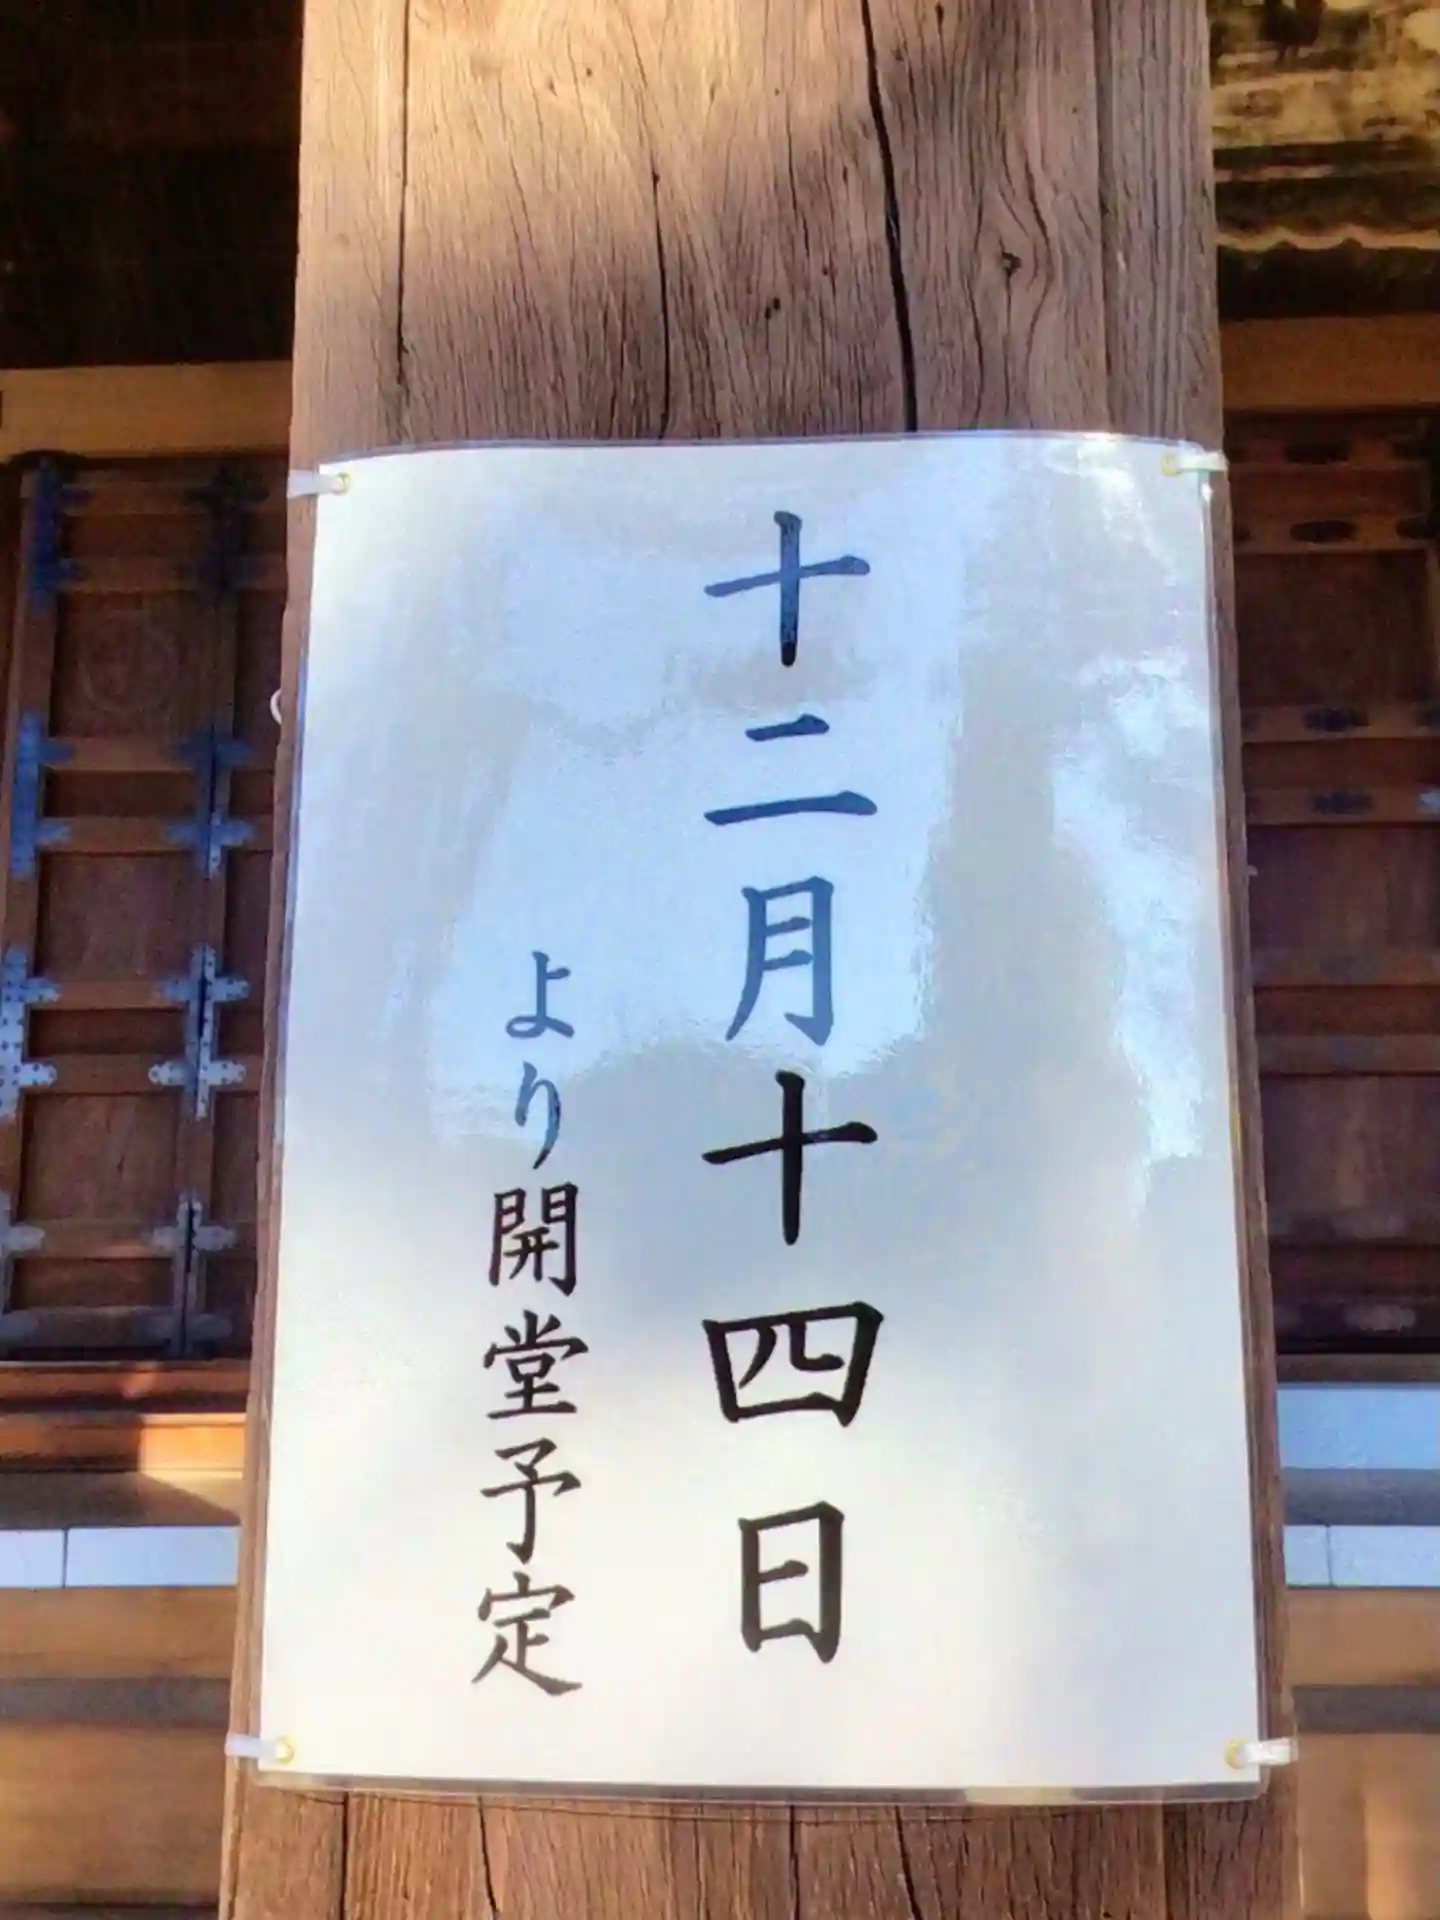 十二月十四日
より開堂予定